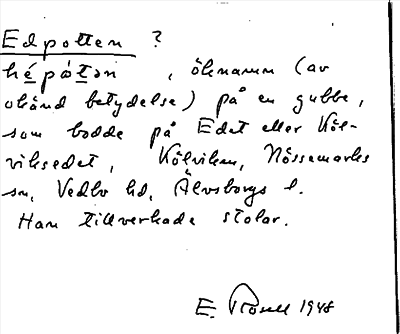 Edpotten ?
hépåtən, öknamn (av
okänd betydelse) på en gubbe,
som bodde på Edet eller Köl-
viksedet, Kölviken, Nössemarks
sn, Vedbo hd, Älvsborgs l.
Han tillverkade stolar.
E. 1948